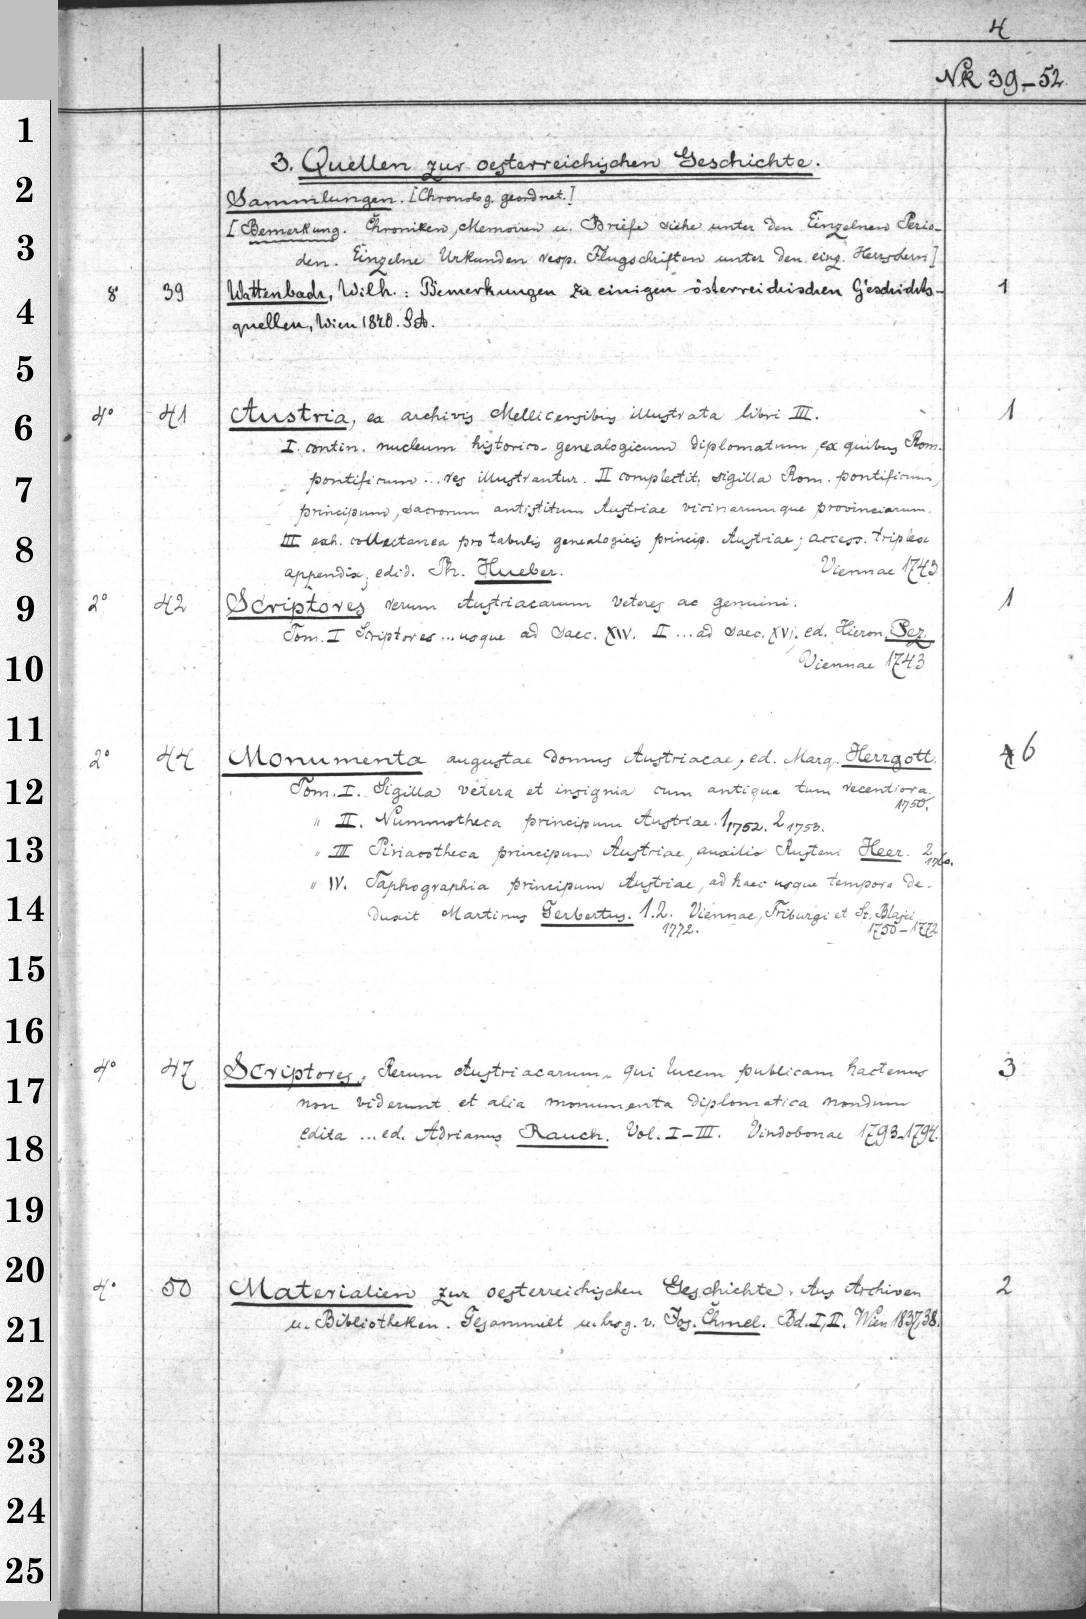 4
NR 39-52
3. Quellen zur oesterreichischen Geschichte.
Sammlungen. [Chronolog. geordnet.]
[Bemerkung. Chroniken, Memoiren u. Briefe siehe unter den Einzelnen Perio-
den. Einzelne Urkunden resp. Flugschriften unter den einz. Herrschern]
8° 39 Wattenbach, Wilh.: Bemerkungen zu einigen österreichischen Geschichts- 1
quellen, Wien 1870. SA.
4° 41 Austria, ex archivis Mellicensibus illustrata libri III. 1
I. contin. nucleum historico-genealogicum diplomatum, ex quibus Rom.
pontificum ... res illustrantur. II complectit. sigilla Rom. pontificum,
principum, sacrorum antistitum Austriae vicinarumque provinciarum.
III exh. collectanea pro tabulis genealogicis princip. Austriae; access. triplex
appendix, edid. Ph. Hueber. Viennae 1743
2° 42 Scriptores rerum Austriacarum veteres ac genuini. 1
Tom. I Scriptores ... usque ad saec. XIV. II ... ad saec. XVI, ed. Hieron. Pez.
Viennae 1743
2° 44 Monumenta augustae domus Austriacae, ed. Marq. Herrgott. 6
Tom. I. Sigilla vetera et insignia cum antiqua tum recentiora.
1750.
" II. Nummotheca principum Austriae. 1 1752. 2 1753.
" III Pinacotheca principum Austriae, auxilio Rusteni Heer. 2
1760.
" IV. Taphographia principum Austriae, ad haec usque tempora de-
duxit Martinus Gerbertus. 1. 2. Viennae, Friburgi et St. Blasii
1772. 1750-1772
4° 47 Scriptores, Rerum Austriacarum, qui lucem publicam hactenus 3
non viderunt et alia monumenta diplomatica nondum
edita ... ed. Adrianus Rauch. Vol. I-III. Vindobonae 1793-1794.
4° 50 Materialien zur oesterreichischen Geschichte. Aus Archiven 2
u. Bibliotheken. Gesammelt u. hrsg. v. Jos. Chmel. Bd. I, II. Wien 1837,38.
1
2
3
4
5
6
7
8
9
10
11
12
13
14
15
16
17
18
19
20
21
22
23
24
25